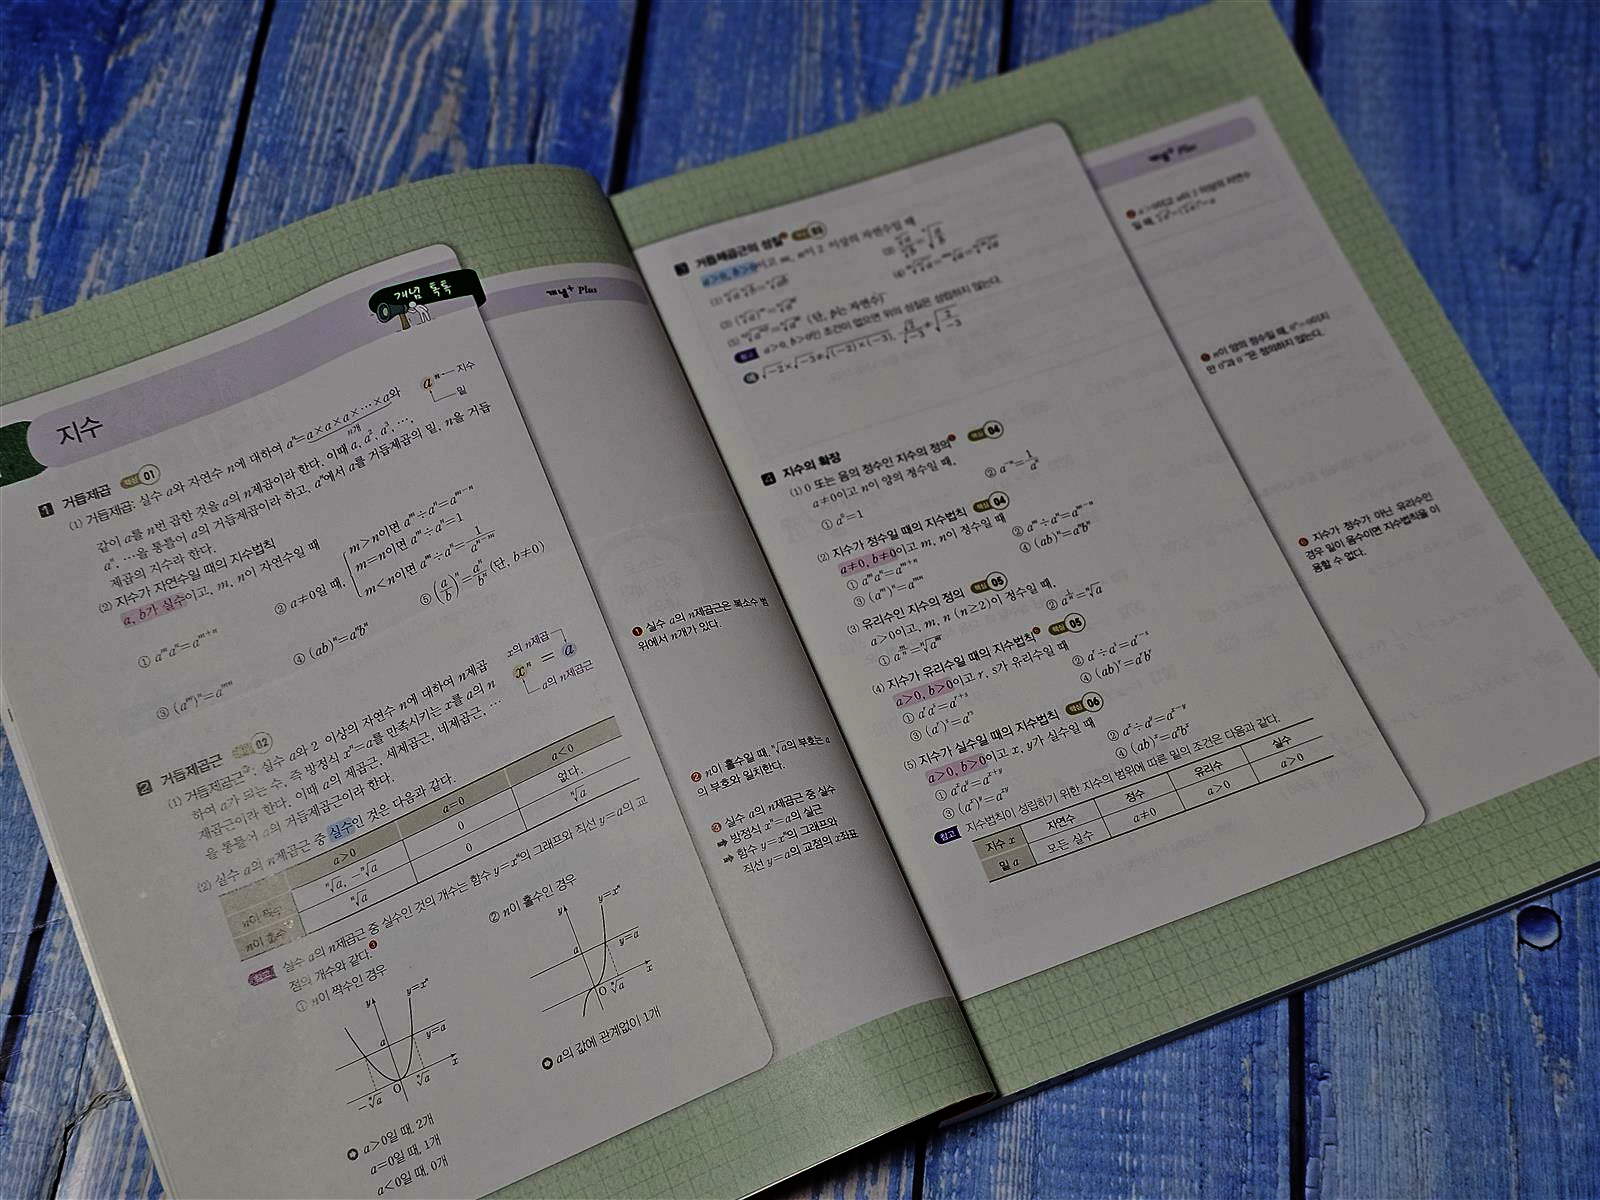 개념 톡톡
지수
개념+ Plus
1 거듭제곱 핵심 01
(1) 거듭제곱: 실수 a와 자연수 n에 대하여 aⁿ=a×a×a×⋯×a와
n개
aⁿ 지수
밑
같이 a를 n번 곱한 것을 a의 n제곱이라 한다. 이때 a, a², a³, ⋯,
aⁿ, ⋯을 통틀어 a의 거듭제곱이라 하고, aⁿ에서 a를 거듭제곱의 밑, n을 거듭
제곱의 지수라 한다.
(2) 지수가 자연수일 때의 지수법칙
a, b가 실수이고, m, n이 자연수일 때
① aᵐaⁿ=aᵐ⁺ⁿ
② a≠0일 때,
m>n이면 aᵐ÷aⁿ=aᵐ⁻ⁿ
m=n이면 aᵐ÷aⁿ=1
m<n이면 aᵐ÷aⁿ=1/aⁿ⁻ᵐ
③ (aᵐ)ⁿ=aᵐⁿ
④ (ab)ⁿ=aⁿbⁿ
⑤ (a/b)ⁿ=aⁿ/bⁿ (단, b≠0)
2 거듭제곱근 핵심 02
(1) 거듭제곱근: 실수 a와 2 이상의 자연수 n에 대하여 n제곱
하여 a가 되는 수, 즉 방정식 xⁿ=a를 만족시키는 x를 a의 n
제곱근이라 한다. 이때 a의 제곱근, 세제곱근, 네제곱근, ⋯
을 통틀어 a의 거듭제곱근이라 한다.
x의 n제곱
xⁿ = a
a의 n제곱근
(2) 실수 a의 n제곱근 중 실수인 것은 다음과 같다.
a>0 a=0 a<0
n이 짝수 ⁿ√a, -ⁿ√a 0 없다.
n이 홀수 ⁿ√a 0 ⁿ√a
참고 실수 a의 n제곱근 중 실수인 것의 개수는 함수 y=xⁿ의 그래프와 직선 y=a의 교
점의 개수와 같다.❸
① n이 짝수인 경우
y
y=xⁿ
a
y=a
-ⁿ√a O ⁿ√a x
a>0일 때, 2개
a=0일 때, 1개
a<0일 때, 0개
② n이 홀수인 경우
y
y=xⁿ
a
y=a
O ⁿ√a x
a의 값에 관계없이 1개
❶ 실수 a의 n제곱근은 복소수 범
위에서 n개가 있다.
❷ n이 홀수일 때, ⁿ√a의 부호는 a
의 부호와 일치한다.
❸ 실수 a의 n제곱근 중 실수
➡ 방정식 xⁿ=a의 실근
➡ 함수 y=xⁿ의 그래프와
직선 y=a의 교점의 x좌표
3 거듭제곱근의 성질 핵심 03
a>0, b>0이고 m, n이 2 이상의 자연수일 때
(1) ⁿ√a ⁿ√b=ⁿ√ab
(3) (ⁿ√a)ᵐ=ⁿ√aᵐ
(단, p는 자연수)
참고 a>0, b>0인 조건이 없으면 위의 성질은 성립하지 않는다.
예 √-2×√-3≠√(-2)×(-3), √2/√-3≠√(2/-3)
4 지수의 확장
(1) 0 또는 음의 정수인 지수의 정의 핵심 04
a≠0이고 n이 양의 정수일 때,
① a⁰=1
② a⁻ⁿ=1/aⁿ
(2) 지수가 정수일 때의 지수법칙 핵심 04
a≠0, b≠0이고 m, n이 정수일 때
① aᵐaⁿ=aᵐ⁺ⁿ
② aᵐ÷aⁿ=aᵐ⁻ⁿ
③ (aᵐ)ⁿ=aᵐⁿ
④ (ab)ⁿ=aⁿbⁿ
(3) 유리수인 지수의 정의 핵심 05
a>0이고, m, n (n≥2)이 정수일 때,
① a^(m/n)=ⁿ√aᵐ
② a^(1/n)=ⁿ√a
(4) 지수가 유리수일 때의 지수법칙 핵심 05
a>0, b>0이고 r, s가 유리수일 때
① aʳaˢ=aʳ⁺ˢ
② aʳ÷aˢ=aʳ⁻ˢ
③ (aʳ)ˢ=aʳˢ
④ (ab)ʳ=aʳbʳ
(5) 지수가 실수일 때의 지수법칙 핵심 06
a>0, b>0이고 x, y가 실수일 때
① aˣaʸ=aˣ⁺ʸ
② aˣ÷aʸ=aˣ⁻ʸ
③ (aˣ)ʸ=aˣʸ
④ (ab)ˣ=aˣbˣ
참고 지수법칙이 성립하기 위한 지수의 범위에 따른 밑의 조건은 다음과 같다.
지수 x 자연수 정수 유리수 실수
밑 a 모든 실수 a≠0 a>0 a>0
개념+ Plus
a>0이고 n이 2 이상의 자연수
일 때,
n이 양의 정수일 때, 0ⁿ=0이지
만 0⁰과 0⁻ⁿ은 정의하지 않는다.
❻ 지수가 정수가 아닌 유리수인
경우 밑이 음수이면 지수법칙을 이
용할 수 없다.